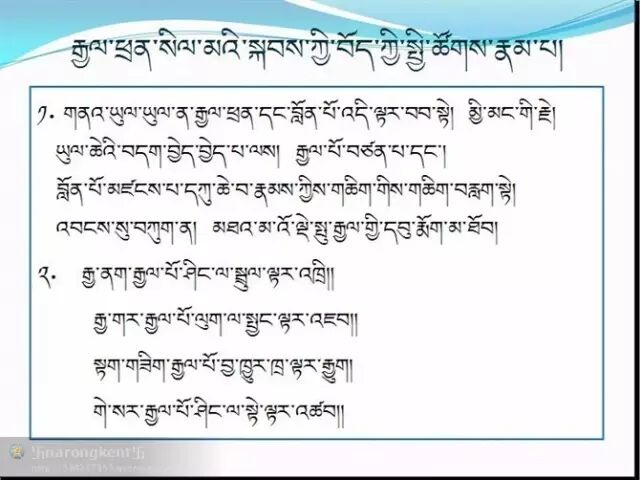 རྒྱལ་ཕྲན་སིལ་མའི་སྐབས་ཀྱི་བོད་ཀྱི་སྤྱི་ཚོགས་རྣམ་པ།
༡. གནའ་ཡུལ་ཡུལ་ན་རྒྱལ་ཕྲན་དང་བློན་པོ་འདི་ལྟར་བབ་སྟེ། མྱི་མང་གི་རྗེ།
ཡུལ་ཆེའི་བདག་བྱེད་བྱེད་པ་ལས། རྒྱལ་པོ་བཙན་པ་དང་།
བློན་པོ་མཛངས་པ་དཀུ་ཆེ་བ་རྣམས་ཀྱིས་གཅིག་གིས་གཅིག་བརླག་སྟེ།
འབངས་སུ་བཀུག་ན། མཐའ་མ་འོ་ལྡེ་སྤུ་རྒྱལ་གྱི་དབུ་རྨོག་མ་ཐོབ།
༢. རྒྱ་ནག་རྒྱལ་པོ་ཤིང་ལ་སྦྲུལ་ལྟར་འཁྲི།།
རྒྱ་གར་རྒྱལ་པོ་ལུག་ལ་སྤྱང་ལྟར་འཇབ།།
སྟག་གཟིག་རྒྱལ་པོ་བྱ་ཁྱུར་ཁྲ་ལྟར་རྒྱུག།
གེ་སར་རྒྱལ་པོ་ཤིང་ལ་སྟེ་ལྟར་འཚབ།།
narongkent